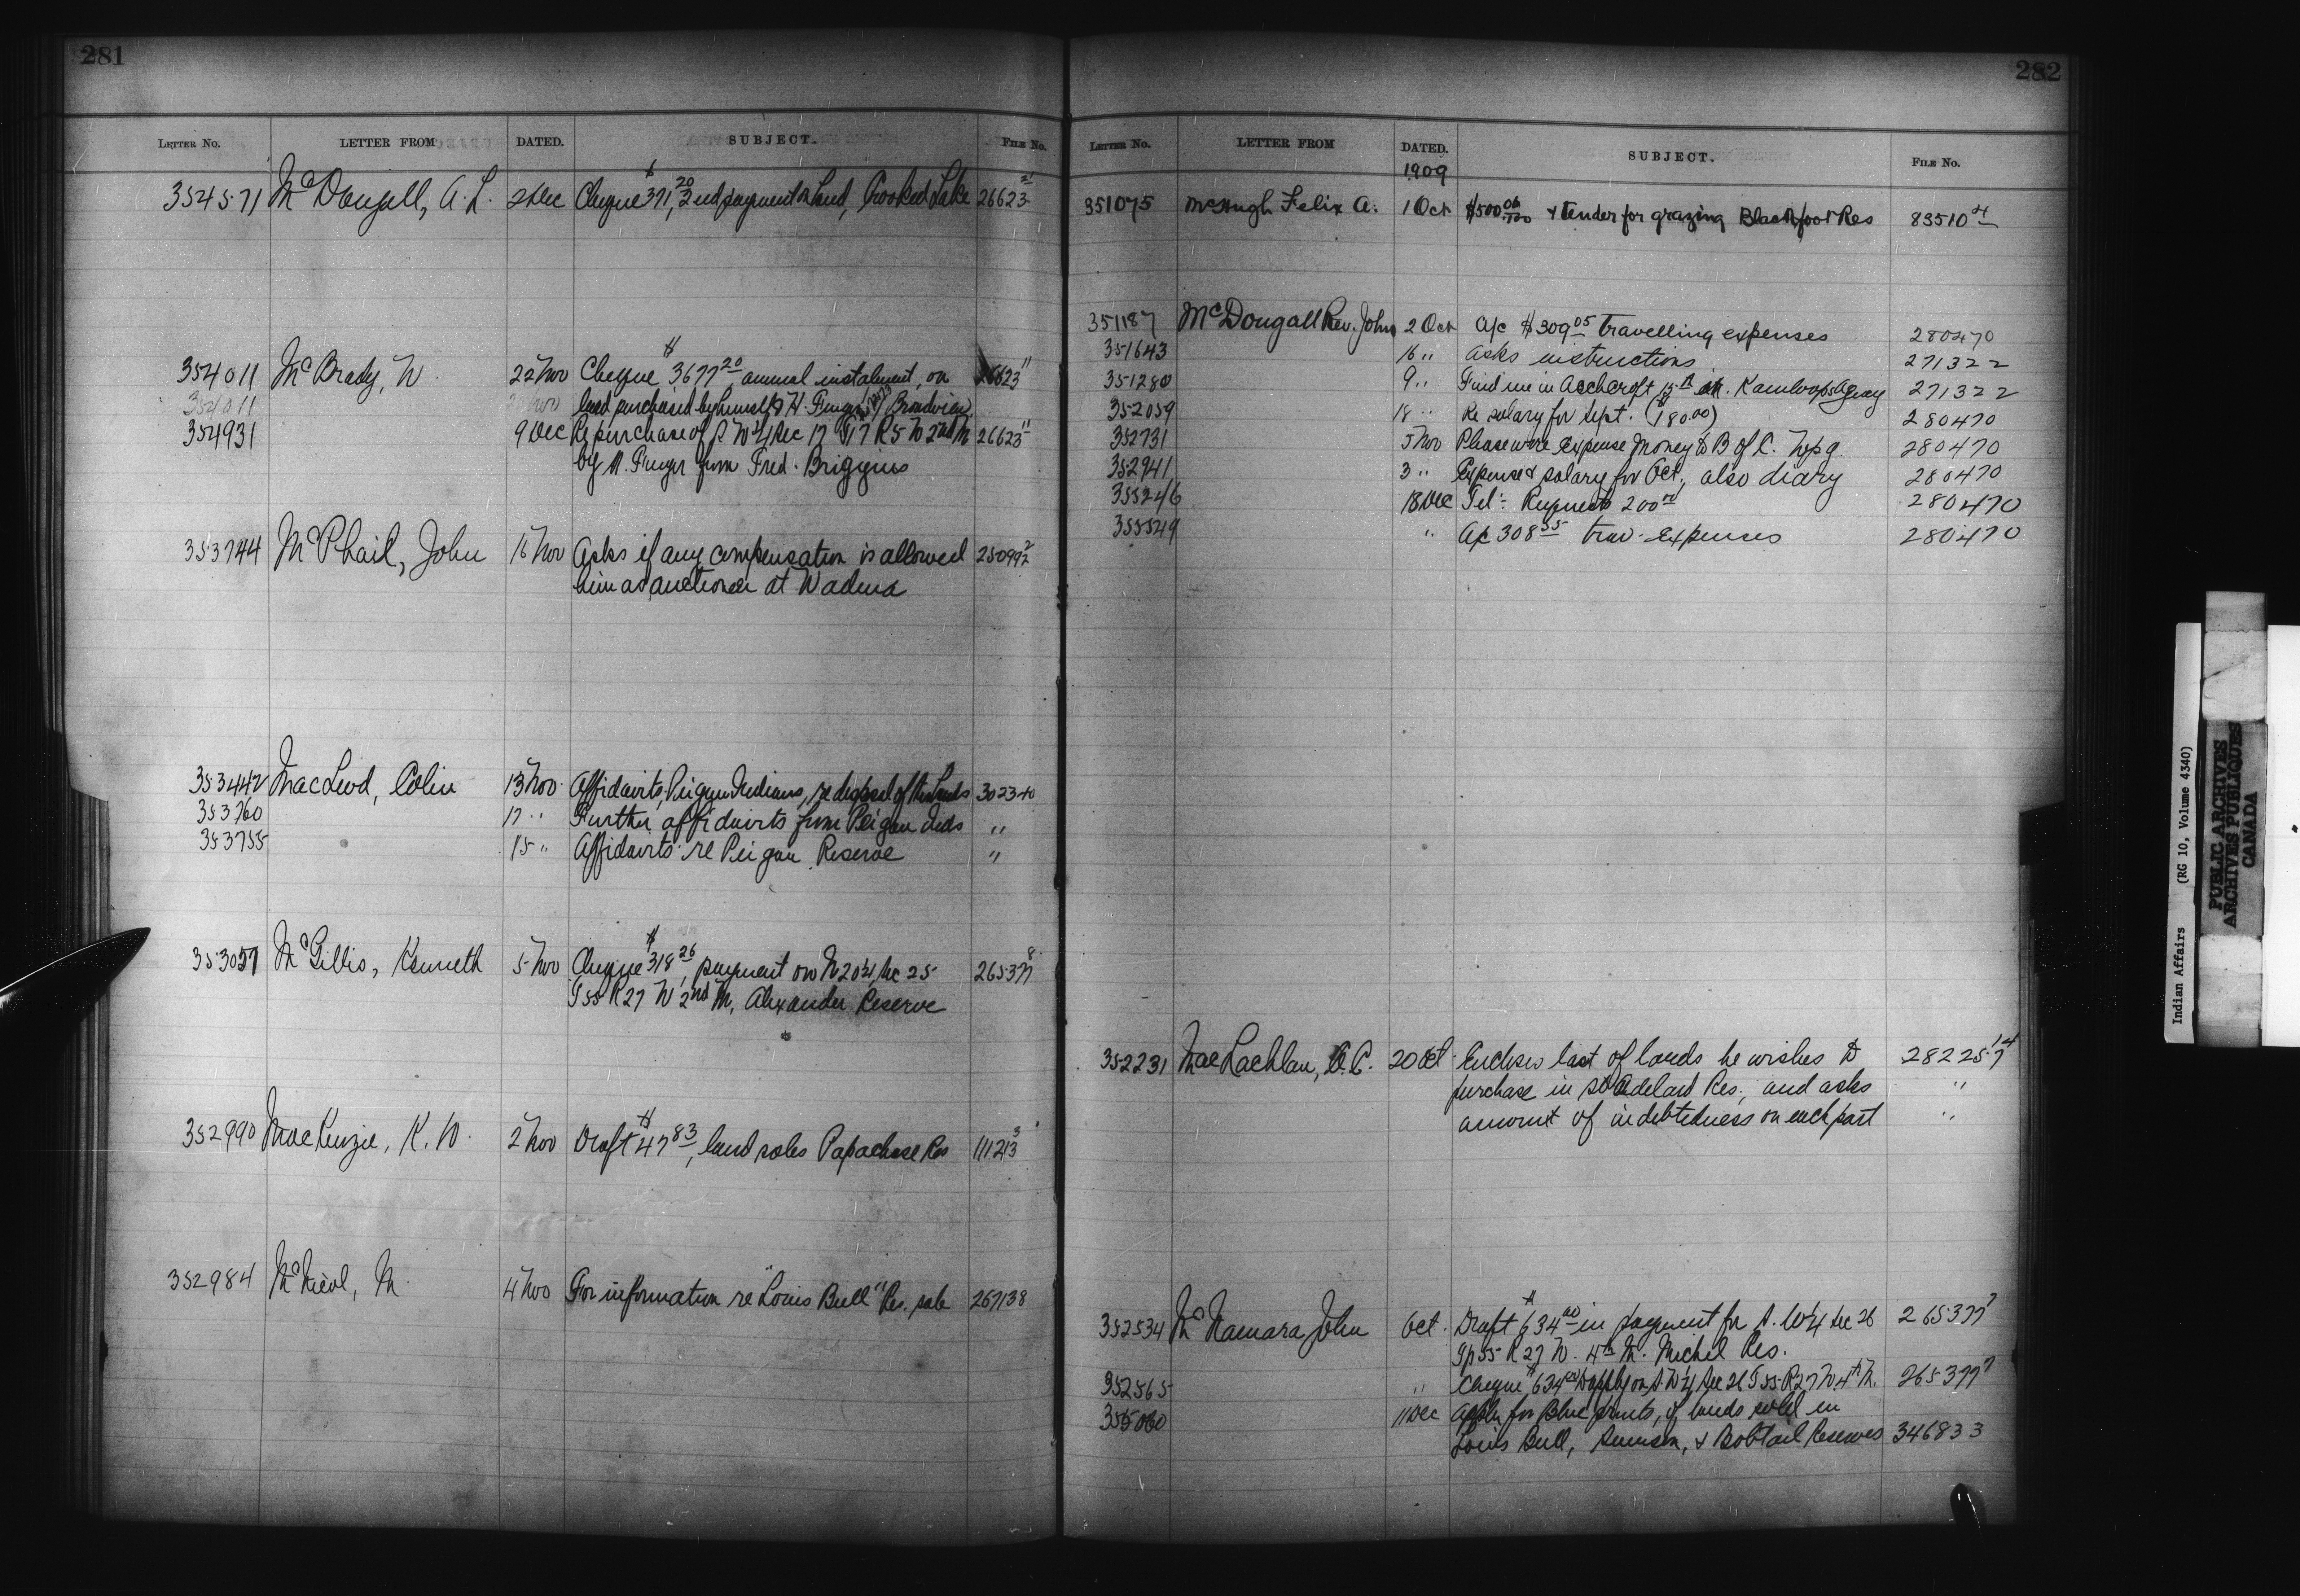 281
LETTER NO. LETTER FROM DATED. SUBJECT. FILE No.
354571 McDougall, A. L. 2 Dec Cheque $371.20, 2nd payment on land, Crooked Lake 26623
354011 McBrady, W. 22 Nov Cheque $3677.20 annual instalment, on 26623 11
354011 land purchased by himself & H. Broadview
354931 9 Dec Re purchase of S W 1/4 Sec 17 T17 R5 W 2nd M 26623 11
by H. from Fred. Briggins
353744 McPhail, John 16 Nov Asks if any compensation is allowed 250992
him as auctioneer at Wadena
353442 MacLeod, Colin 13 Nov. Affidavits, Peigan Indians, re disposal of their lands 302340
353760 17 " Further affidavits from Peigan Inds "
353755 15 " Affidavits re Peigan Reserve "
353057 McGillis, Kenneth 5 Nov Cheque $318.26, payment on Sec 25 265377 8
T55 R27 W 2nd M, Alexander Reserve
352990 MacKenzie, K. W. 2 Nov Draft $47.83, land sales Papachase Res 111213 3
352984 McNicol, M. 4 Nov For information re "Louis Bull" Res. sale 267138
282
LETTER No. LETTER FROM DATED. SUBJECT. FILE No.
1909
351075 McHugh Felix A. 1 Oct $500.00 & tender for grazing Blackfoot Res 83510 4
351187 McDougall Rev. John 2 Oct A/c $309.05 travelling expenses 280470
351643 16 " Asks instructions 271322
351280 9 " Find me in Aschcroft 15th Kamloops Agency 271322
352059 18 " Re salary for Sept. ($180.00) 280470
352731 5 Nov Please wire expense money to B of C. Wpg. 280470
352941 3 " Expense & salary for Oct, also diary 280470
355246 18 Dec Tel: Requests 200.00 280470
355549 " A/c 308.55 trav. expenses 280470
352231 MacLachlan, C. 20 Oct Encloses list of lands he wishes to 282257 14
purchase in Res., and asks "
amount of indebtedness on each part "
352534 McNamara John Oct. Draft $634.00 in payment for S. W 1/4 Sec 26 265377 7
Tp 55 R 27 W. 4th M. Michel Res.
352565 " Cheque $634.00 to apply on S. W 1/4 Sec 26 T 55 R 27 W 4th M. 265377 7
355060 11 Dec Apply for Blue prints, of lands sold in
Louis Bull, Samson, & Bobtail Reserves 346833
Indian Affairs (RG 10, Volume 4340)
PUBLIC ARCHIVES
ARCHIVES PUBLIQUES
CANADA